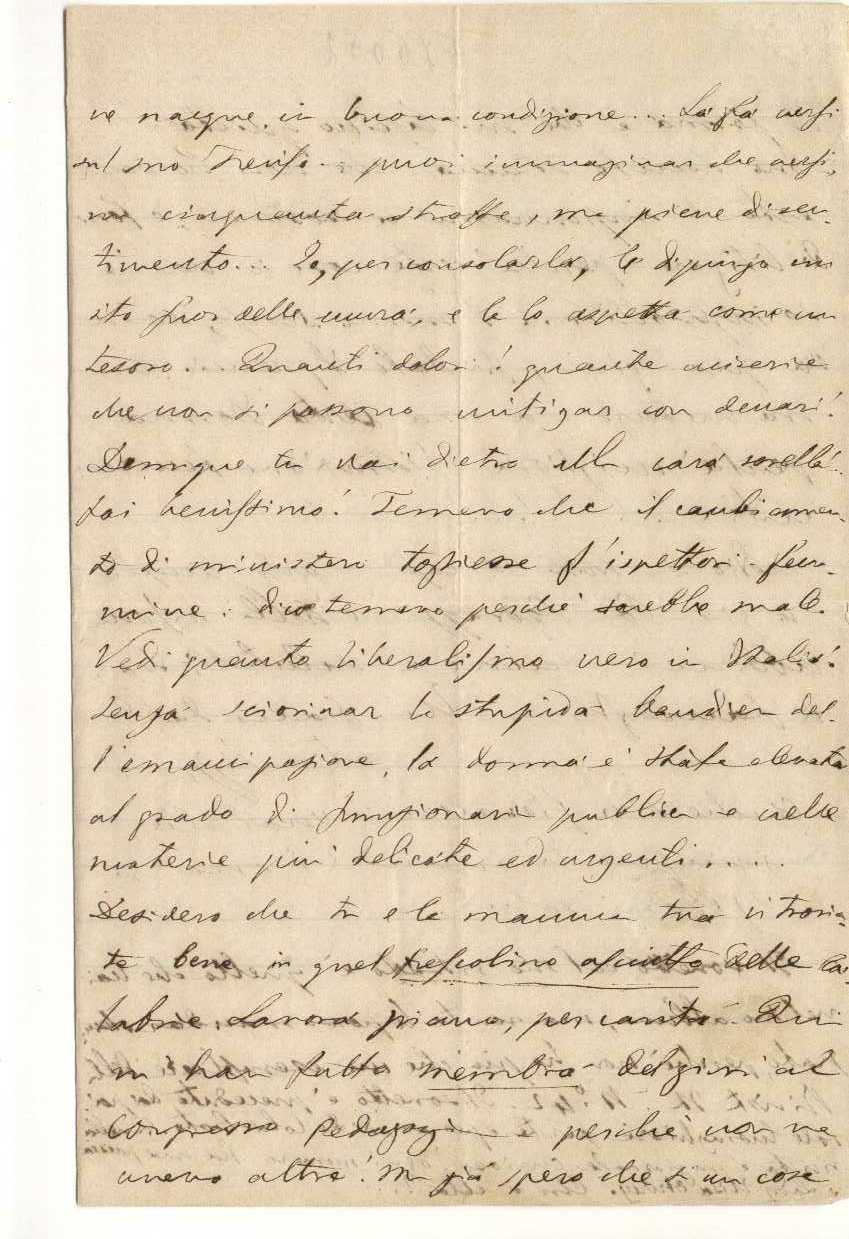 ne nacque in buona condizione... La fa versi
sul suo Trenso... puoi immaginar che versi,
cinquanta stroffe, ma piene di sen-
timento... Io, per consolarla, le dipingo un
sito fuor delle mura, e la lo aspetta come un
tesoro... Quanti dolori! quante miserie
che non si possono mitigar con denari!
Dunque tu vai dietro alla cara sorella!
fai benissimo! Temevo che il cambiamen-
to di ministero togliesse l'ispettori fem-
mine: dico temevo perchè sarebbe male.
Vedi quanto liberalismo vero in Italia!
senza sciorinar la stupida bandiera del-
l'emancipazione, la donna è stata elevata
al grado di funzionaria publica e nelle
materie più delicate ed urgenti....
Desidero che tu e la mamma tua vi trovia-
te bene in quel frescolino asciutto delle Ca-
labrie. Lavora piano, per carità. Qui
m'han fatto membra del giurì al
Congresso Pedagogico perchè non ne
aveva altre! Ma già spero che sarà cosa